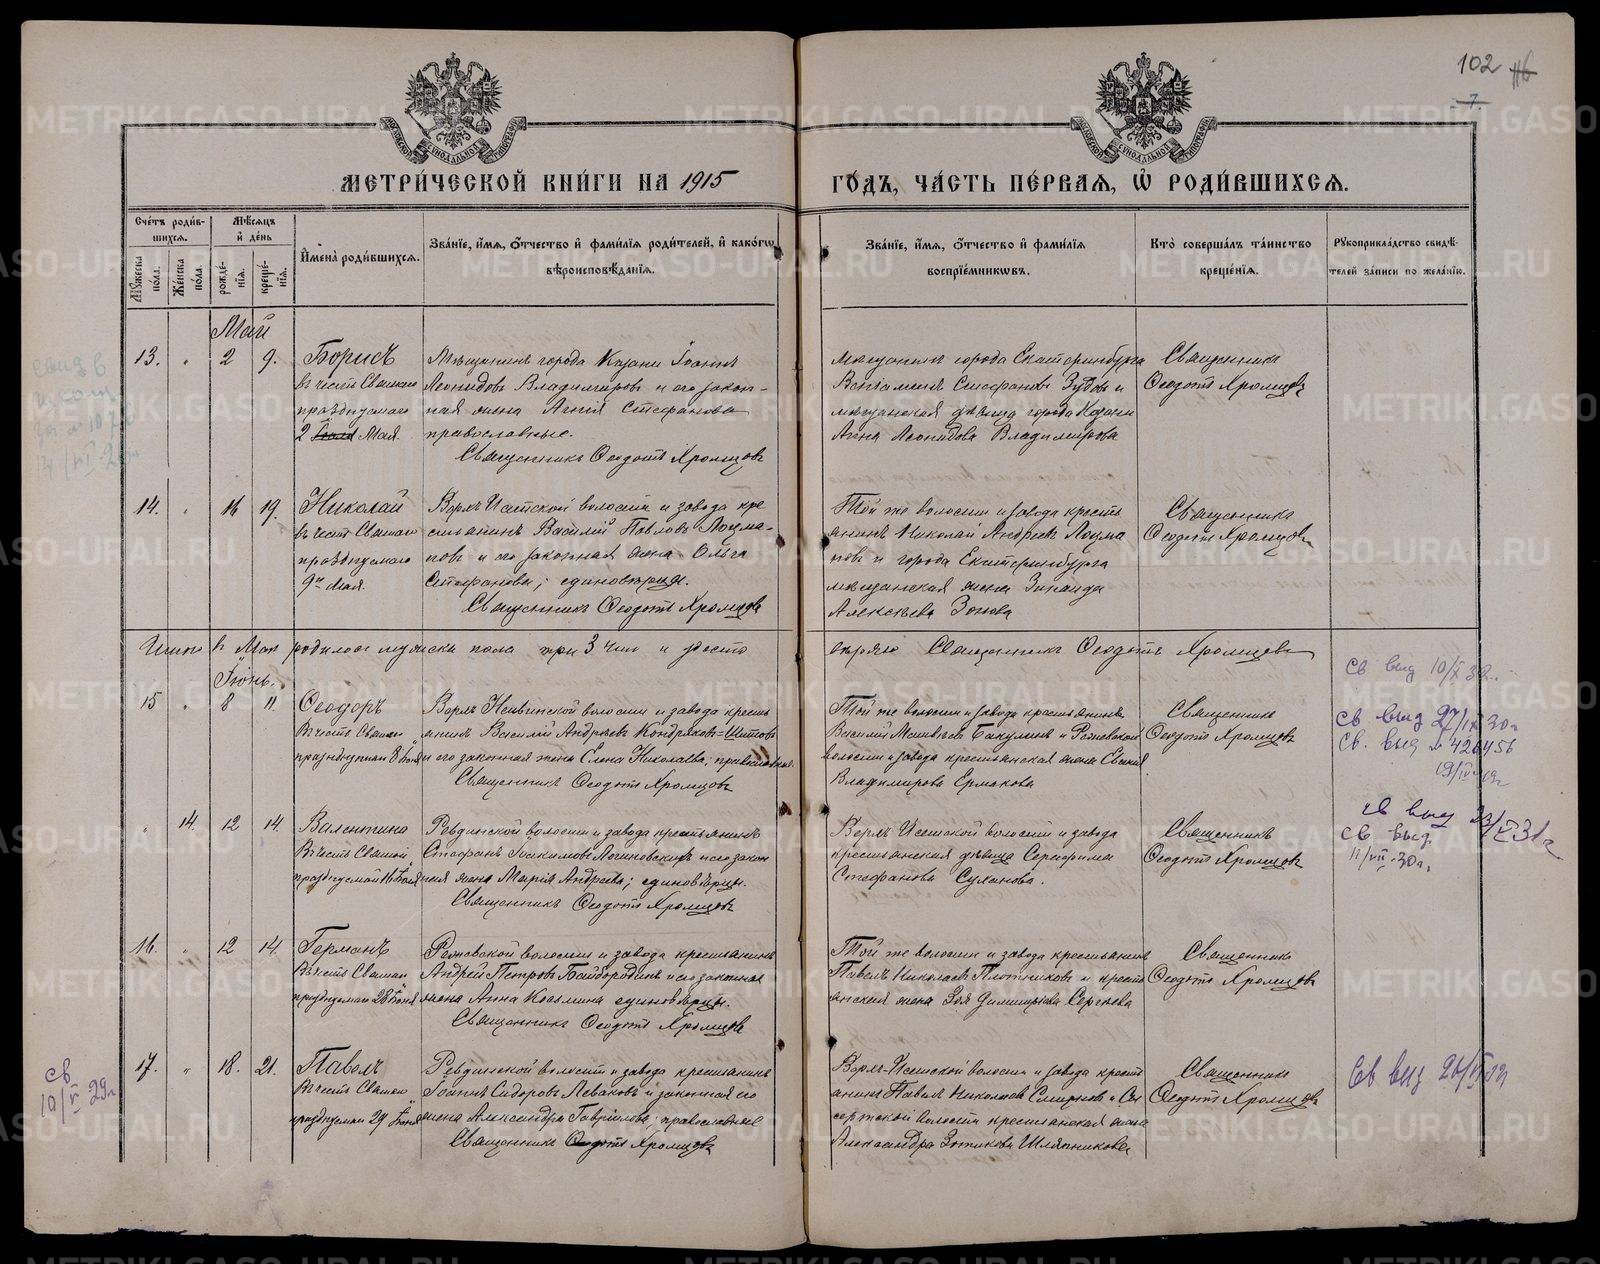 102
7.
МЕТРИ́ЧЕСКОЙ КНИ́ГИ НА 1915 ГО́ДЪ, ЧА́СТЬ ПЕ́РВАЯ, Ѡ҆ РОДИ́ВШИХСЯ.
МОСКОВСКОЙ СУНОДАЛЬНОЙ ТИПОГРАФІИ
МОСКОВСКОЙ СУНОДАЛЬНОЙ ТИПОГРАФІИ
Сче́тъ роди́вшихся.
Му́жеска по́ла.
Же́нска по́ла.
Мѣ́сяцъ и҆ де́нь
рожде́нїя.
креще́нїя.
И҆мена̀ роди́вшихся.
Зва́нїе, и҆́мя, ѻ҆́тчество и҆ фами́лїя роди́телей, и҆ како́гѡ
вѣроисповѣ́данїя.
Зва́нїе, и҆́мя, ѻ҆́тчество и҆ фами́лїя
воспрїе́мникѡвъ.
Кто̀ соверша́лъ та́инство
креще́нїя.
Рꙋкоприкла́дство свидѣ́телей за́писи по жела́нїю.
Май
13. " 2 9.
Борисъ
въ честь Святаго
празднуемаго
2 Мая.
Мѣщанинъ города Казани Іоаннъ
Леонидовъ Владимировъ и его закон-
ная жена Агнія Стефанова
православные.
Священникъ Ѳеодотъ Хромцовъ
мѣщанинъ города Екатеринбурга
Веніаминъ Стефановъ Зубовъ и
мѣщанская дѣвица города Казани
Анна Леонидова Владимирова
Священникъ
Ѳеодотъ Хромцовъ
14. " 16 19.
Николай
въ честь Святаго
празднуемаго
9го Мая.
Верхъ Исетской волости и завода кре
стьянинъ Василій Павловъ Лоцма-
новъ и его законная жена Ольга
Стефанова; единовѣрцы.
Священникъ Ѳеодотъ Хромцовъ
Той же волости и завода кресть
янинъ Николай Андреевъ Лоцма
новъ и города Екатеринбурга
мѣщанская жена Зинаида
Алексѣева Зонова
Священникъ
Ѳеодотъ Хромцовъ
Итого въ Маѣ родилось мужска пола три 3 чел и
Священникъ Ѳеодотъ Хромцовъ
Іюнь.
15 " 8 11.
Ѳеодоръ
Въ честь Святаго
празднуемаго 8 Іюня
Верхъ Нейвинской волости и завода кресть
янинъ Василій Андреевъ Кондраковъ=Шитовъ
и его законная жена Елена Николаева; православные.
Священникъ Ѳеодотъ Хромцовъ
Той же волости и завода крестьянинъ
Василій Матвѣевъ Бакулинъ и Режевской
волости и завода крестьянская жена Евгенія
Владимирова Ермакова
Священникъ
Ѳеодотъ Хромцовъ
св выд 10/X 32.
св выд 27/ 30г
св. выд № 426456
19/IV
" 14. 12 14.
Валентина
Въ честь Святой
празднуемой Іюня
Ревдинской волости и завода крестьянинъ
Стефанъ Іоакимовъ Логиновскихъ и его закон
ная жена Марія Андреева; единовѣрцы.
Священникъ Ѳеодотъ Хромцовъ
Верхъ Исетской волости и завода
крестьянская дѣвица Серафима
Стефанова Суханова.
Священникъ
Ѳеодотъ Хромцовъ
св выд 23/X 31г
св выд
11/VII-30г.
16. " 12 14.
Германъ
Въ честь Святаго
празднуемаго 28 Іюня
Режевской волости и завода крестьянинъ
Андрей Петровъ Байбородинъ и его законная
жена Анна Козмина единовѣрцы.
Священникъ Ѳеодотъ Хромцовъ
Той же волости и завода крестьянинъ
Павелъ Николаевъ Плотниковъ и кресть
янская жена Зоя Димитріева Сергѣева
Священникъ
Ѳеодотъ Хромцовъ
17. " 18. 21.
Павелъ
Въ честь Святаго
празднуемаго 29 Іюня
Ревдинской волости и завода крестьянинъ
Іоаннъ Сидоровъ Леваковъ и законная его
жена Александра Гавріилова; православные
Священникъ Ѳеодотъ Хромцовъ
Верхъ-Исетской волости и завода кресть
янинъ Павелъ Николаевъ Смирновъ и Сы
сертской волости крестьянская жена
Александра Зотикова Шляпникова
Священникъ
Ѳеодотъ Хромцовъ
св
10/VI 29г
METRIKI.GASO-URAL.RU